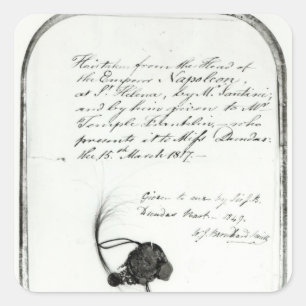 Hair taken from the Head of
the Emperor Napoleon,
at St Helena, by Mr Santini,
and by him given to Mr
Temple Franklin, who
presents it to Miss Dundas
the 15th March 1817.—
Given to me by Miss
Dundas 1849.